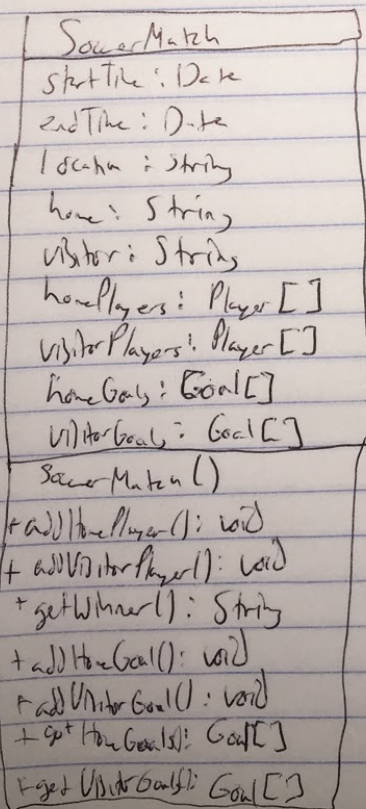 SoccerMatch
startTime : Date
endTime : Date
location : String
home : String
visitor : String
homePlayers : Player []
visitorPlayers : Player []
homeGoals : Goal[]
visitorGoals : Goal []
SoccerMatch ()
+ addHomePlayer() : void
+ addVisitorPlayer() : void
+ getWinner() : String
+ addHomeGoal() : void
+ addVisitorGoal() : void
+ getHomeGoals() : Goal[]
+ getVisitorGoals() : Goal []